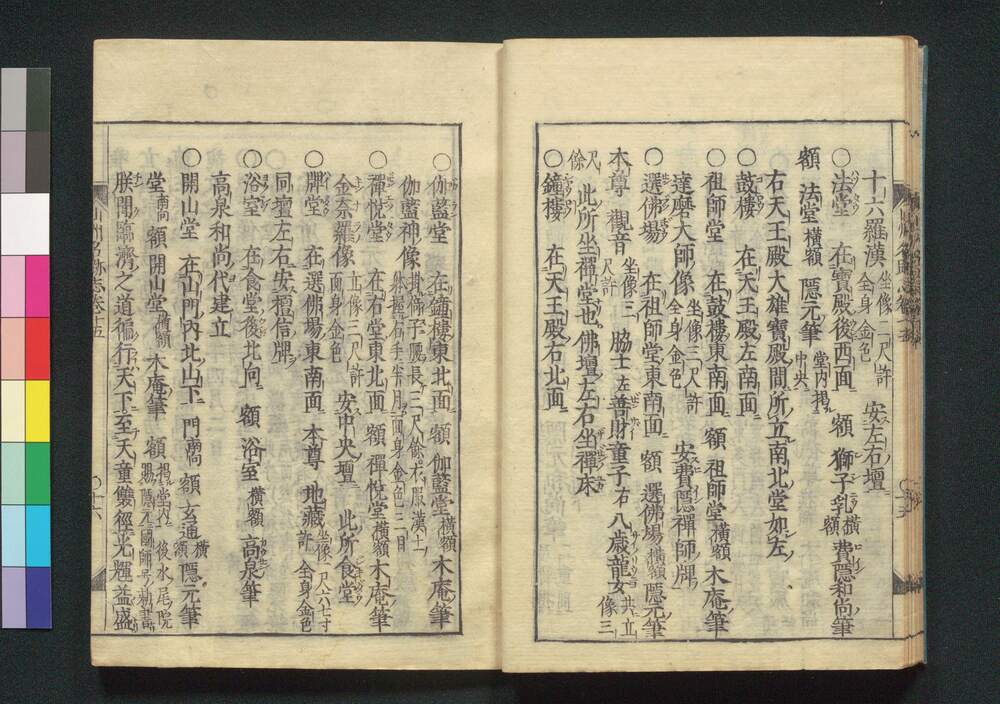 十六羅漢 坐像二尺許 全身金色 安左右壇
○法堂 在寶殿後西面 額 獅子乳 横額 費隱和尚筆
額 法堂 横額 隱元筆 堂内掲中央
右天王殿大雄寶殿間所立南北堂如左
○鼓樓 在天王殿左南面
○祖師堂 在鼓樓東南面 額 祖師堂 横額 木庵筆
達磨大師像 坐像三尺許 全身金色 安費隱禪師牌
○選佛場 在祖師堂東南面 額 選佛場 横額 隱元筆
本尊 觀音 坐像三尺許 脇士 左 善財童子 右 八歳龍女 共立像三
尺餘 此所坐禪堂也佛壇左右坐禪床
○鐘樓 在天王殿右北面
○伽藍堂 在鐘樓東北面 額 伽藍堂 横額 木庵筆
伽藍神像
○禪悦堂 在右堂東北面 額 禪悦堂 横額 木庵筆
金奈羅像 立像三尺許 面身金色 安中央壇 此所食堂
○牌堂 在選佛場東南面 本尊 地藏 坐像一尺六七寸許 全身金色
同壇左右安檀信牌
○浴室 在食堂後北向 額 浴室 横額 高泉筆
高泉和尚代建立
○開山堂 在山門内北山下 門南向 額 玄通 横額 隱元筆
堂 南向 額 開山堂 横額 木庵筆 額 掲堂内 後水尾院賜隱元國師号勅書
朕聞臨濟之道徧行天下至天童雙徑光輝益盛
山州名跡志巻十五
○十六